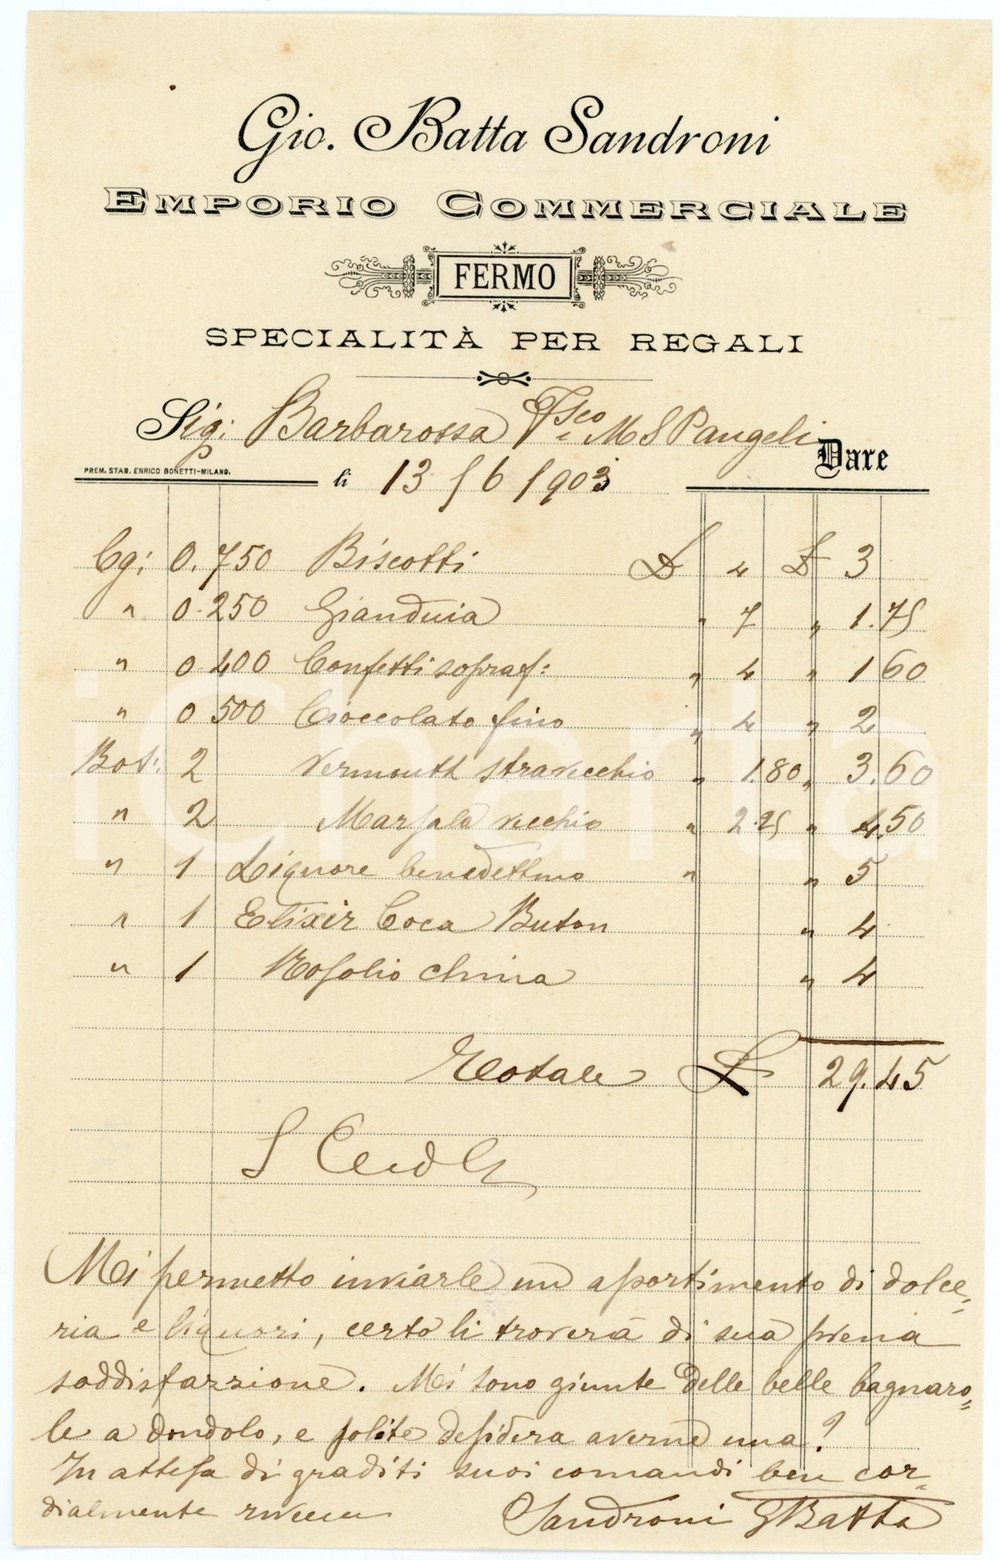 Gio. Batta Sandroni
EMPORIO COMMERCIALE
FERMO
SPECIALITÀ PER REGALI
Sig: Barbarossa Fsco M S Pangeli
Dare
PREM. STAB. ENRICO BONETTI-MILANO.
li 13/6/1903
Cg: 0.750 Biscotti £ 4 £ 3
" 0.250 Gianduia " 7 " 1.75
" 0 400 Confetti sopraf: " 4 " 1 60
" 0 500 Cioccolato fino " 4 " 2
Bot: 2 Vermouth stravecchio " 1.80 " 3.60
" 2 Marsala vecchio " 2.25 " 4.50
" 1 Liquore benedettino " " 5
" 1 Elixir Coca Buton " 4
" 1 Rosolio China " 4
Totale £ 29.45
Mi permetto inviarle un assortimento di dolce=
ria e liquori, certo li troverà di sua piena
soddisfazzione. Mi sono giunte delle belle bagnaro=
le a dondolo, e desidera averne una?
In attesa di graditi suoi comandi ben cor=
dialmente
Sandroni GBatta
iCharta